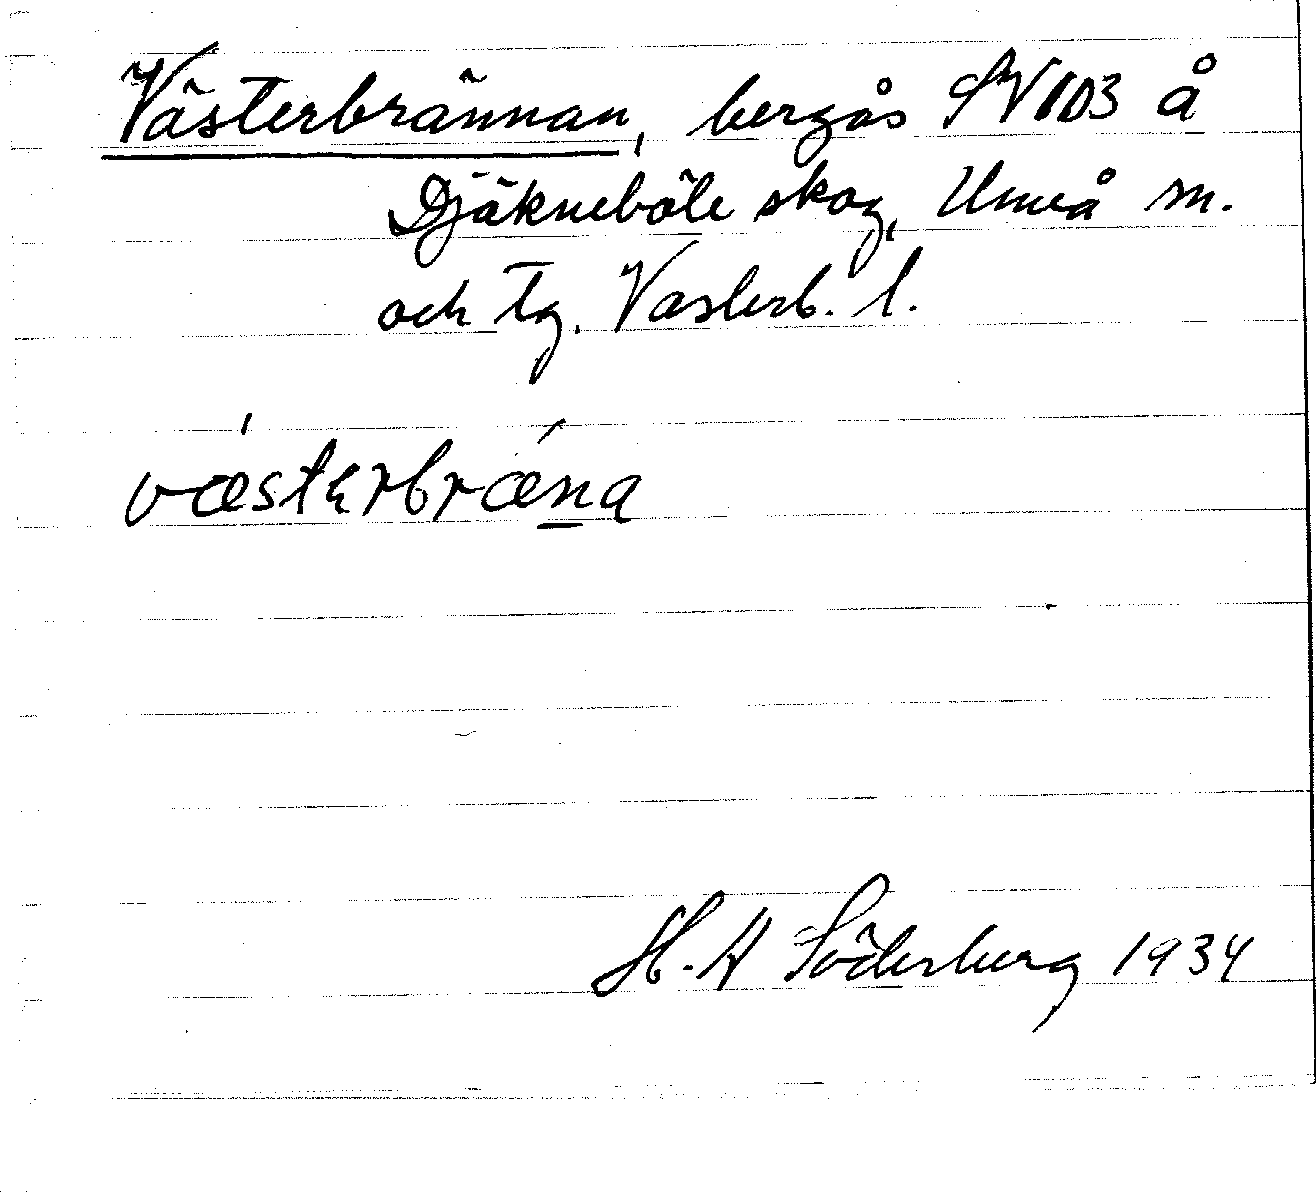 Västerbrännan, bergås SV1D3 å
Djäkneböle skog, Umeå sn.
och tg. Västerb. l.
væsterbræna
H. A Söderberg 1934